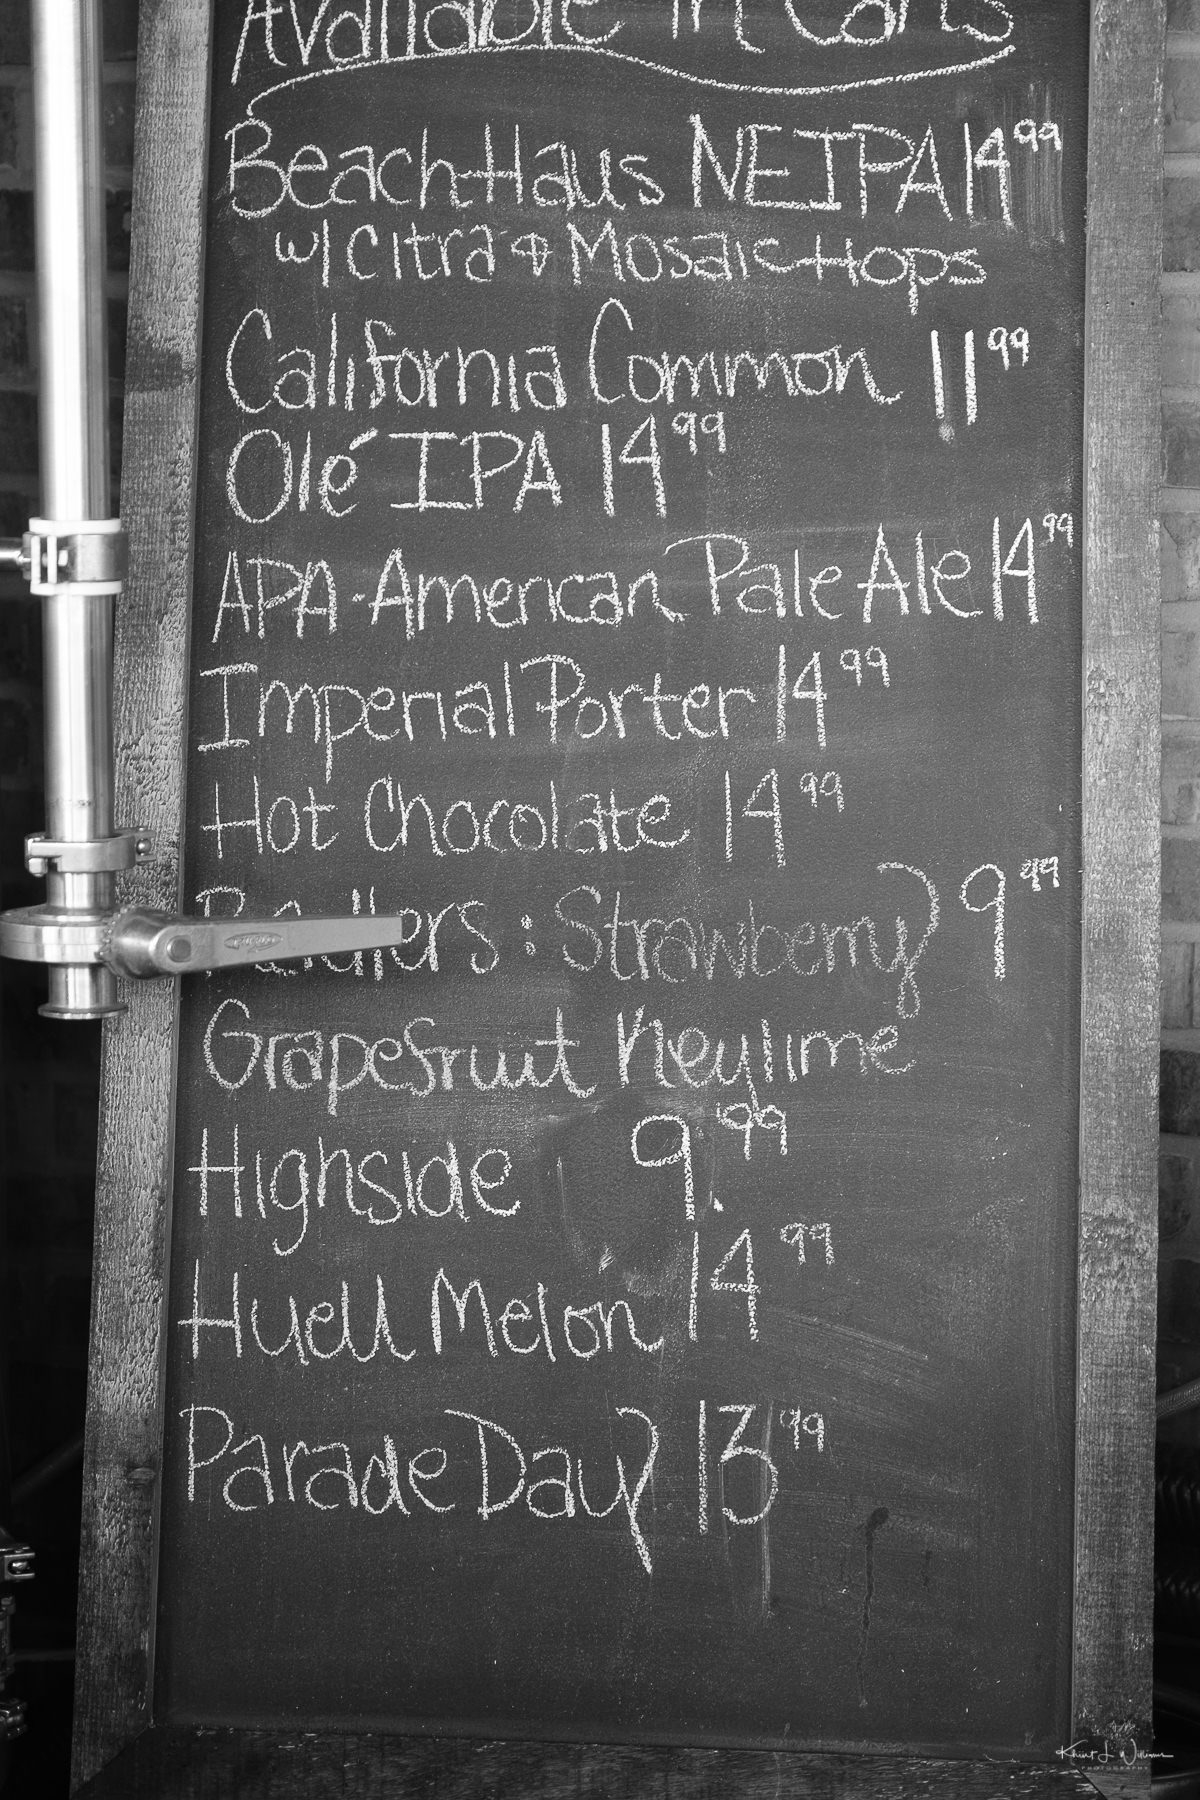 Available in Cans
Beach Haus NEIPA 14.99
w/ Citra & Mosaic Hops
California Common 11.99
Olé IPA 14.99
APA - American Pale Ale 14.99
Imperial Porter 14.99
Hot Chocolate 14.99
Radlers: Strawberry 9.99
Grapefruit Keylime
Highside 9.99
Huell Melon 14.99
Parade Day 13.99
Khürt L. Williams
PHOTOGRAPHY